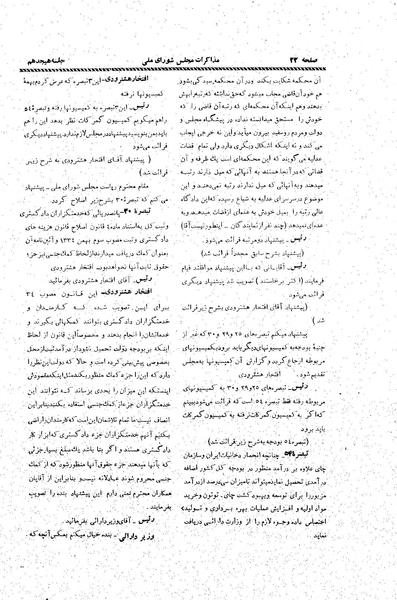 صفحه ۲۲
مذاکرات مجلس شورای ملی
جلسه هیجدهم
آن محکمه شکایت بکند ودر آن محکمه رسیدگی بشود
هم خود آن قاضی مجاب میشود که حق نداشته که رتبه او بیش
بدهند وهم اینکه آن محکمه‌ای که رتبه آن قاضی را که
خودش را مستحق میدانسته نداده در پیشگاه مجلس و
دولت ومردم روسفید بیرون میآید واین نه خرجی ایجاب
میکند و نه اینکه اشکال دیگری دارد ولی تمام قضات
عدلیه می گویند که این محکمه‌ای است یک طرفه و آن
قضاتی که در آنجا هستند به آنهائی که میل دارند رتبه
میدهند وبه آنهائی که میل ندارند رتبه نمی‌دهند و این
موضوع در سرسرای عدلیه به شیاع رسیده که این دادگاه
عالی رتبه را بمیل خودش به عده‌ای از قضات میدهد وبه
عده‌ای نمیدهد (چند نفر از نمایندگان ـ اینطور نیست آقا)
رئیس ـ پیشنهاد دو مرتبه قرائت می‌شود.
(پیشنهاد بشرح سابق مجدداً قرائت شد)
رئیس ـ آقایانی که با این پیشنهاد موافقند قیام
فرمایند (اکثر برخاستند) تصویب شد پیشنهاد دیگری
قرائت میشود.
(پیشنهاد آقای افتخار هشترودی بشرح زیر قرائت
شد)
پیشنهاد میکنم تبصره‌های ۲۵ و ۲۹ و ۳۰ که غیر از
جنبهٔ بودجه به کمیسیونهای دیگر باید برود بکمیسیونهای
مربوطه ارجاع گردد و گزارش آن کمیسیونها به مجلس
تقدیم شود. افتخار هشترودی
رئیس ـ تبصره‌های ۲۵ و ۲۹ و ۳۰ به کمیسیونهای
مربوطه رفته فقط تبصره ۵۴ است که قرائت می‌شود ببینم
که اگر به کمیسیون گمرکات نرفته به کمیسیون گمرکات
برود.
(تبصره ۵۴ بودجه به شرح زیر قرائت شد)
تبصره ۵۴ـ چنانچه انحصار دخانیات ایران وسازمان
چای علاوه بر درآمد منظور در بودجه کل کشور اضافه
درآمدی تحصیل نمایند میتوانند تا میزان سی درصد از درآمد
مزبور را برای توسعه وبهبود کشت چای، توتون وخرید
مواد اولیه و افزایش عملیات بهره برداری و تولید به
اختصاص داده وجوه لازم را از وزارت دارائی دریافت
دارند.
افتخار هشترودی ـ این ۳ تبصره که عرض کردم بهمهٔ
کمیسیونها نرفته
رئیس ـ این ۳ تبصره به کمیسیونها رفته و تبصره ۵۴
راهم میگویم کمیسیون گمرکات نظر بدهد این را هم
باید بمن بنویسید پیشنهاد در مجلس لازم ندارد پیشنهاد دیگری
قرائت می‌شود
(پیشنهاد آقای افتخار هشترودی به شرح زیر
قرائت شد)
مقام محترم ریاست مجلس شورای ملی ـ پیشنهاد
می کنم تبصره ۳۰ بشرح زیر اصلاح شود.
تبصره ۳۰ـ پانصد ریالی که خدمتگزاران دادگستری
وثبت کل باستناد ماده ۵ قانون اصلاح قانون هزینه های
دادگستری وثبت مصوب سوم بهمن ۱۳۳۴ و آئین‌نامه آن
بعنوان کمک دریافت میدارند از لحاظ کمک جنسی نیز جزء
حقوق ثابت آنها نخواهد بود. افتخار هشترودی
رئیس ـ آقای افتخار هشترودی بفرمائید.
افتخار هشترودی ـ این قانون مصوب ۳۴
برای این تصویب شده که کارمندان و
خدمتگزاران دادگستری بتوانند کمکهائی بگیرند و
کارشان را انجام بدهند و مخصوصاً این قانون از لحاظ
اینکه بر بودجه دولت تحمیل نشود از درآمد ثبت از محل
بخصوصی پیش‌بینی کرده است و حالا که دولت این نظر را
دارد که این را جزء کمک منظور بکنند اینکه مقصود شاید
اینست که این میزان را بحدی برساند که نتوانند این
خدمتگزاران از کمک جنسی استفاده بکنند بنابراین این
انصاف نیست ما تمام تلاشمان این است که کارمندان را راضی
بکنیم آنهم خدمتگزاران جزء دادگستری که ابزار کار
دادگستری هستند و اگر بنا باشد یک مبلغ بسیار جزئی
که به آنها میدهند جزء حقوق آنها منظور شود که از کمک
جنسی محروم شوند عادلانه نیست و بنابراین از آقایان
همکاران محترم تمنی دارم این پیشنهاد بنده را تصویب
بفرمایند.
رئیس ـ آقای وزیر دارائی بفرمائید.
وزیر دارائی ـ بنده خیال میکنم بعض آنچه که.